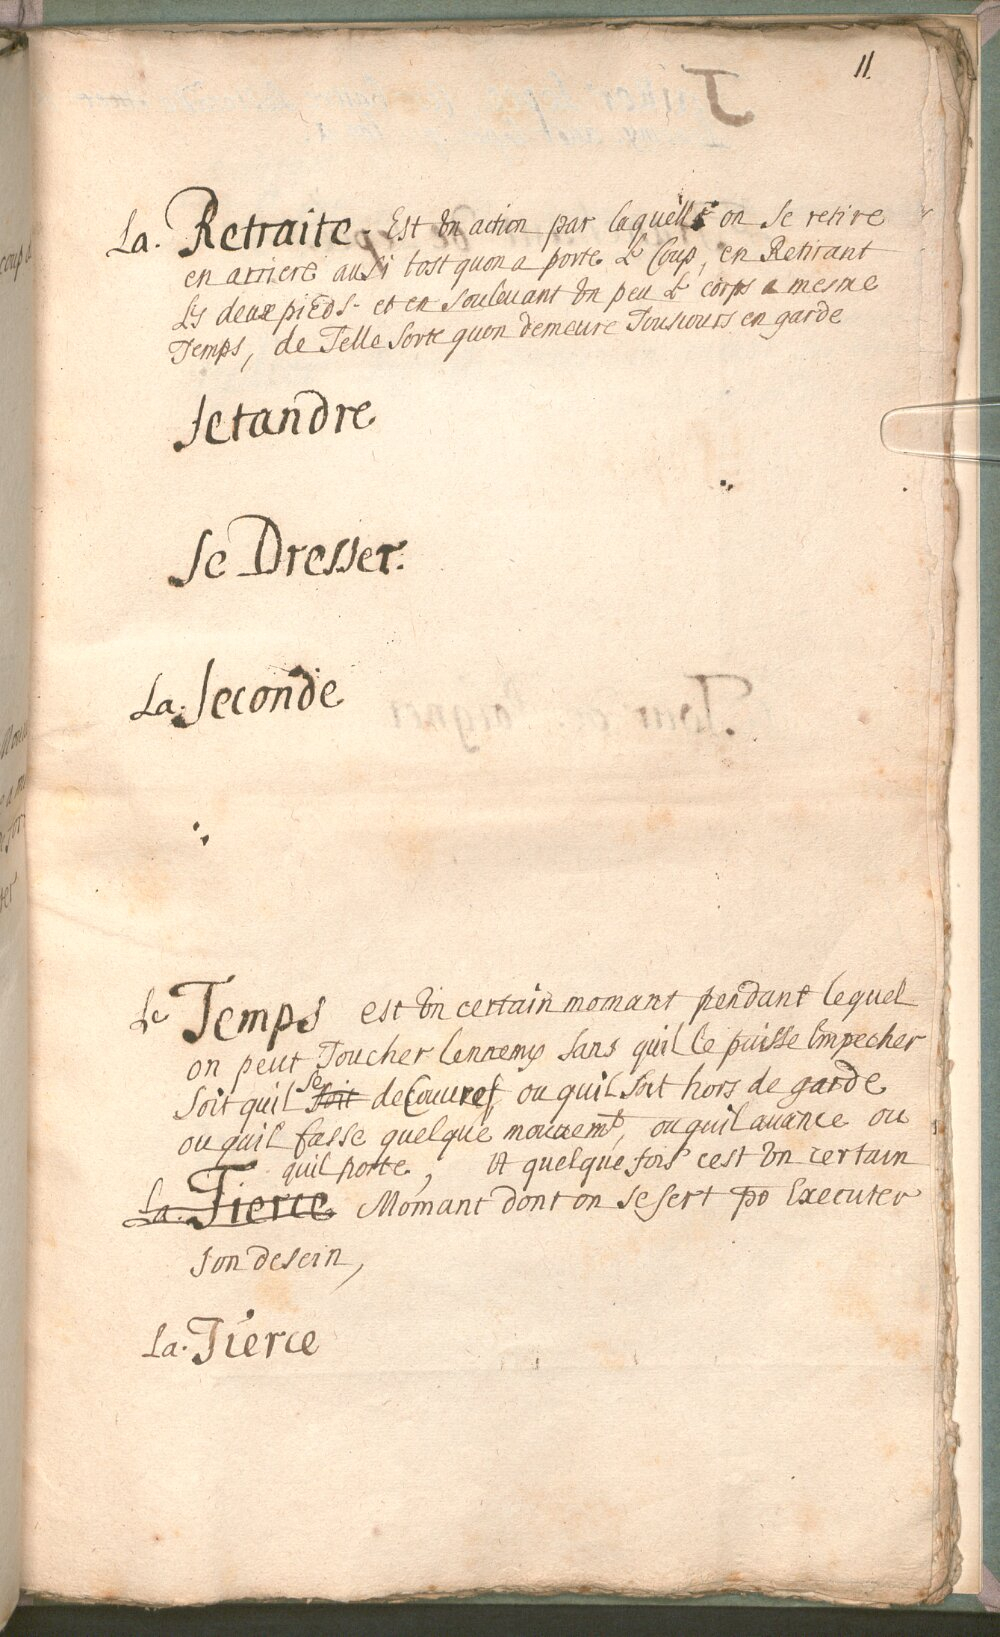 11.
La. Retraite - Est Vn action par laquelle on Se retire
en arriere aussi tost quon a porte Le Coup, en Retirant
Les deux pieds - et en soulevant Vn peu Le corps a mesme
Temps, de Telle Sorte quon demeure Tousiours en garde
Setandre
Se Dresser.
La. Seconde
Le Temps est Vn certain momant pendant lequel
on peut Toucher Lennemy Sans quil Le puisse Empecher
Soit quil se soit deCouuref, ou quil soit hors de garde
ou quil fasse quelque mouuemt, ou quil auance ou
quil porte, Et quelque fois cest Vn certain
La. Tierce Momant dont on se sert po Executer
son desein,
La. Tierce